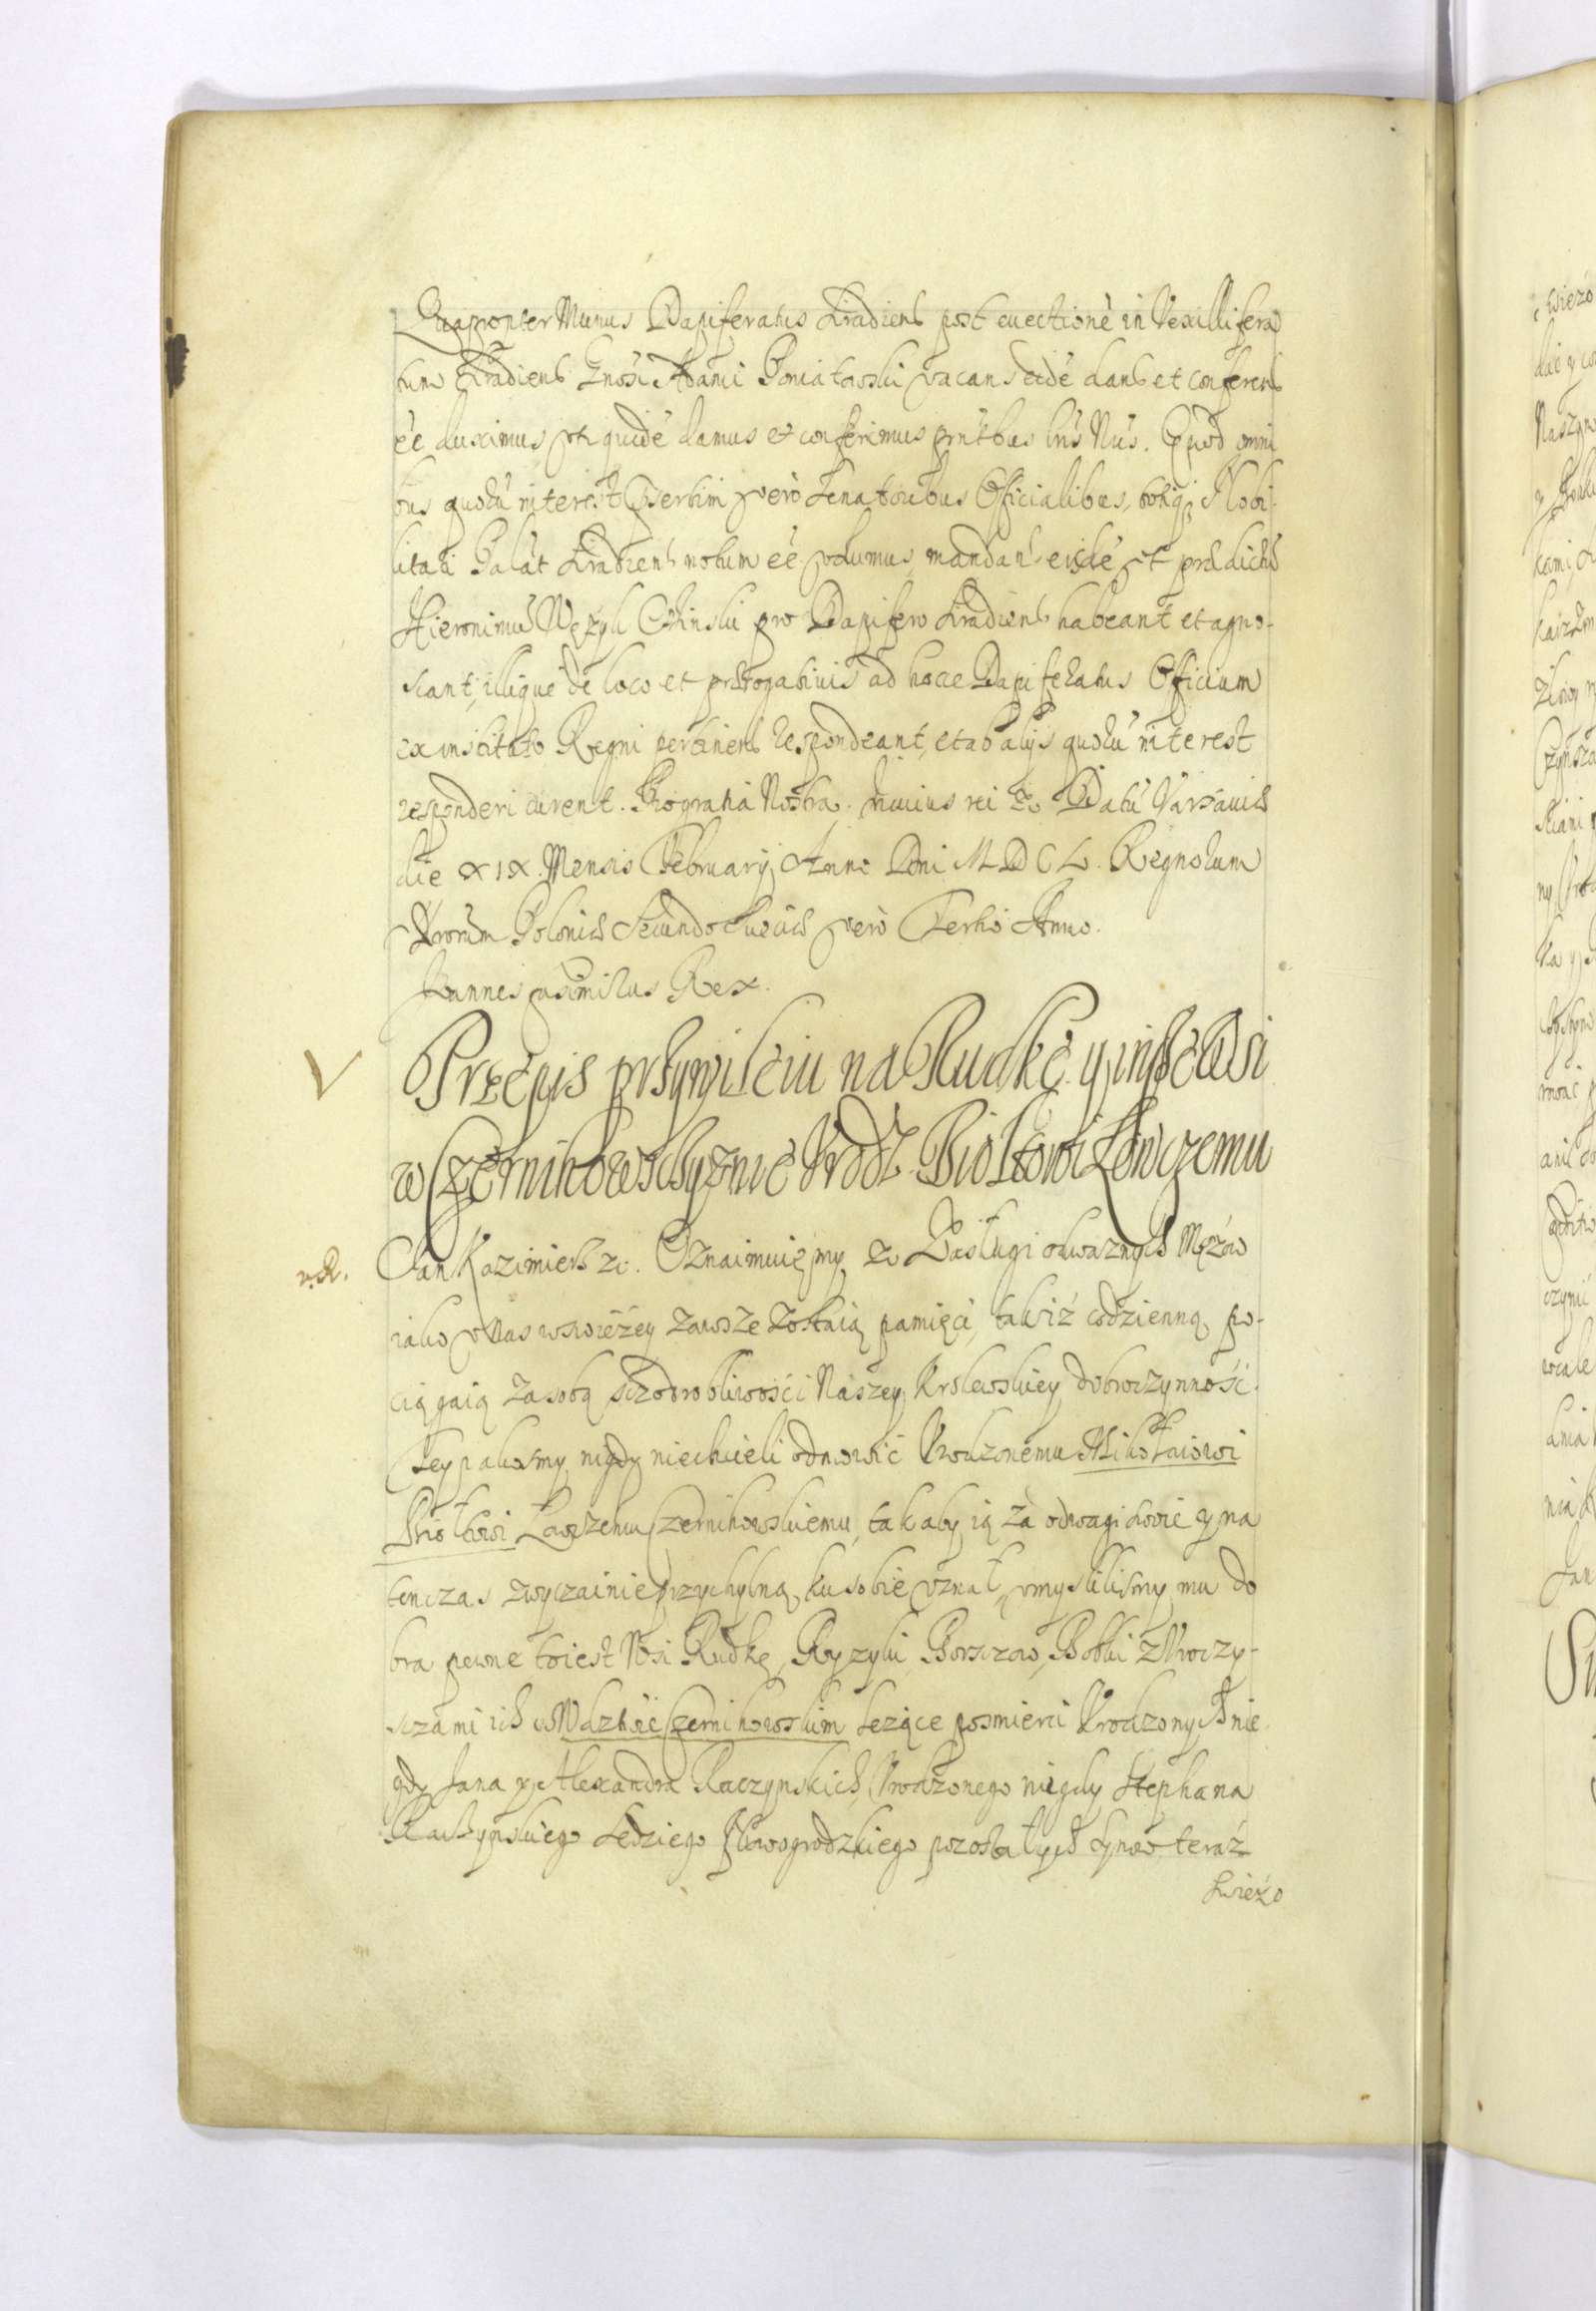 Quapropter Munus Dapiferatus Siradiens post euectionē in Vexillifera
tum Siradiens Gnosi Adami Poniatowski vacans eidē dand et conferend
ēe duximus vti quidē damus et conferimus pntibus lrīs Nrīs. Quod omni
bus quorū interest Psertim verò Senatoribus Officialibus, totiq; Nobi
litati Palāt Siradiens notum ēe volumus, mandan. eisdē vt prædictū
Hieronimū Wężyk Osinski pro Dapifero Siradiens habeant et agno-
scant, illique de loco et prærogatiuis ad hocce Dapiferatus Officium
ex instituto Regni pertinens respondeant, et ab alijs quorū interest
responderi curent. Pro gratia Nostra. In cuius rei &c Datū Varsauiæ
die XIX. Mensis February Anno Dni MDCL. Regnorum
Nrorum Poloniæ Secundo Sueciæ verò Tertio Anno.
Joannes Casimirus Rex.
Przepis przywileiu na Rudkę y insze Wsi
w Czernihowszczyznie Vrodz. Piotkowi Łowczemu
v.R. Jan Kazimierz &c. Oznaimuięmy &c Zasługi odważnych Mężow
iako v Nas w swieżey zawsze zostaią pamięci, takiż codzienną po-
ciągaią za sobą sczodrobliwości Naszey Krolewskiey dobroczynność.
Tey iakosmy nigdy niechcieli odmowić Vrodzonemu Mikołaiowi
Piotkowi Łowczemu Czernihowskiemu, tak aby ią za odwagi swoie y na
tenczas zwyczainie przychylną ku sobie vznał, vmyslilismy mu do
bra pewne toiest Wsi Rudkę, Ryzyki, Borszczow, Bobki z Vroczy-
sczami ich w Wdztwie Czernihowskim leżące po smierci Vrodzonych nie
gdy Jana y Alexandra Raczynskich, Vrodzonego niegdy Stephana
Raczynskiego Sedziego Nowogrodzkiego pozostałych synow teraz
swieżo